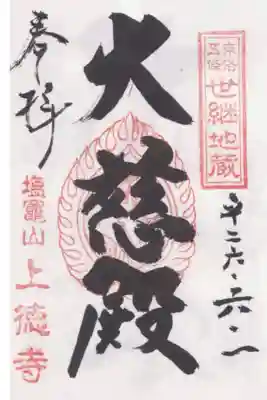 京都
五條
世継地蔵
平二六・六・一
大慈殿
奉拝
塩竈山
上徳寺